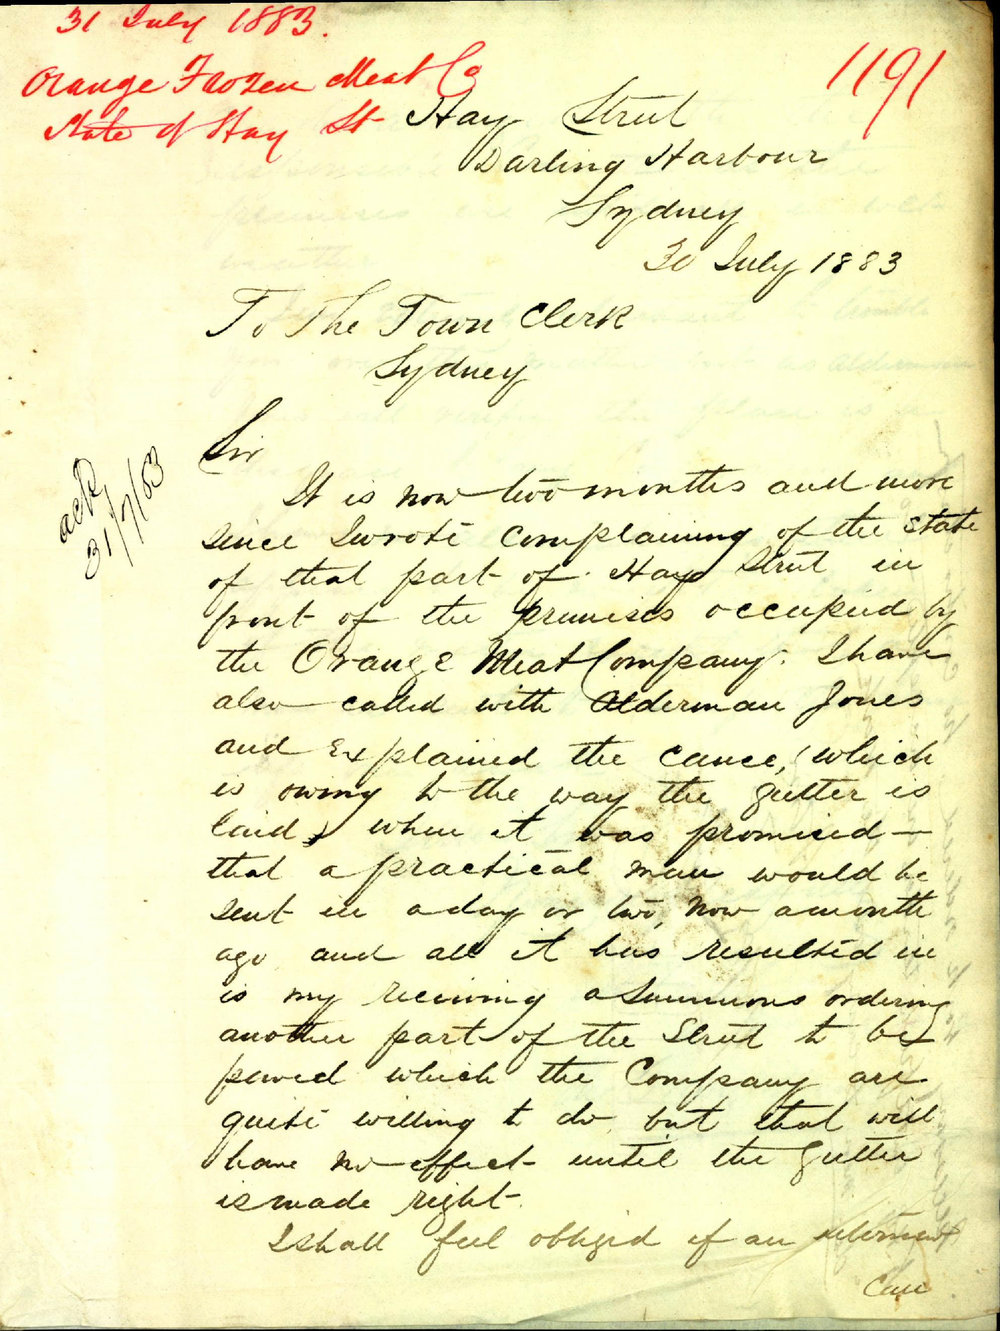 31 July 1883.
Orange Frozen Meat Co
State of Hay St
1191
Hay Street
Darling Harbour
Sydney
30 July 1883
To The Town Clerk
Sydney
ack
31/7/83
Sir
It is now two months and more
since I wrote complaining of the state
of that part of Hay Street in
front of the premises occupied by
the Orange Meat Company. I have
also called with Alderman Jones
and Explained the cause, (which
is owing to the way the gutter is
laid) when it was promised —
that a practical man would be
sent in a day or two, now a month
ago and all it has resulted in
is my receiving a Summons ordering
another part of the Street to be
paved which the Company are
quite willing to do but that will
have no effect until the gutter
is made right.
I shall feel obliged if an
can